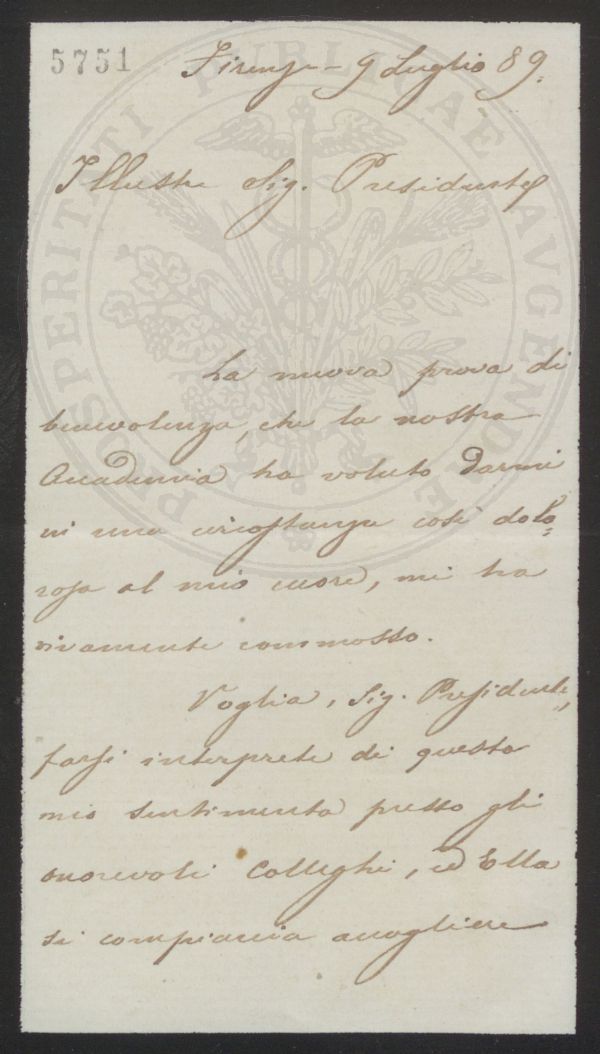 5751
Firenze - 9 Luglio 89.
PROSPERITATI PUBLICAE AVGENDAE
Illustre Sig. Presidente
La nuova prova di
benevolenza, che la nostra
Accademia ha voluto darmi
in una circostanza così dolo=
rosa al mio cuore, mi ha
vivamente commosso.
Voglia, Sig. Presidente,
farsi interprete di questo
mio sentimento presso gli
onorevoli Colleghi, ed Ella
si compiaccia accogliere